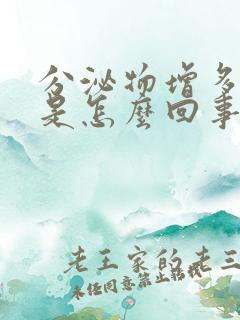 分泌物增多
是怎麼回事
老王家的老三
未经同意禁止转载